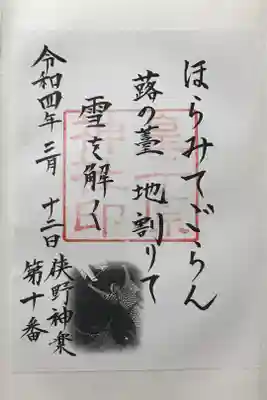 ほらみてごらん
蕗の薹 地割りて
雪を解く
狭野神楽 第十番
令和四年 三月 十二日